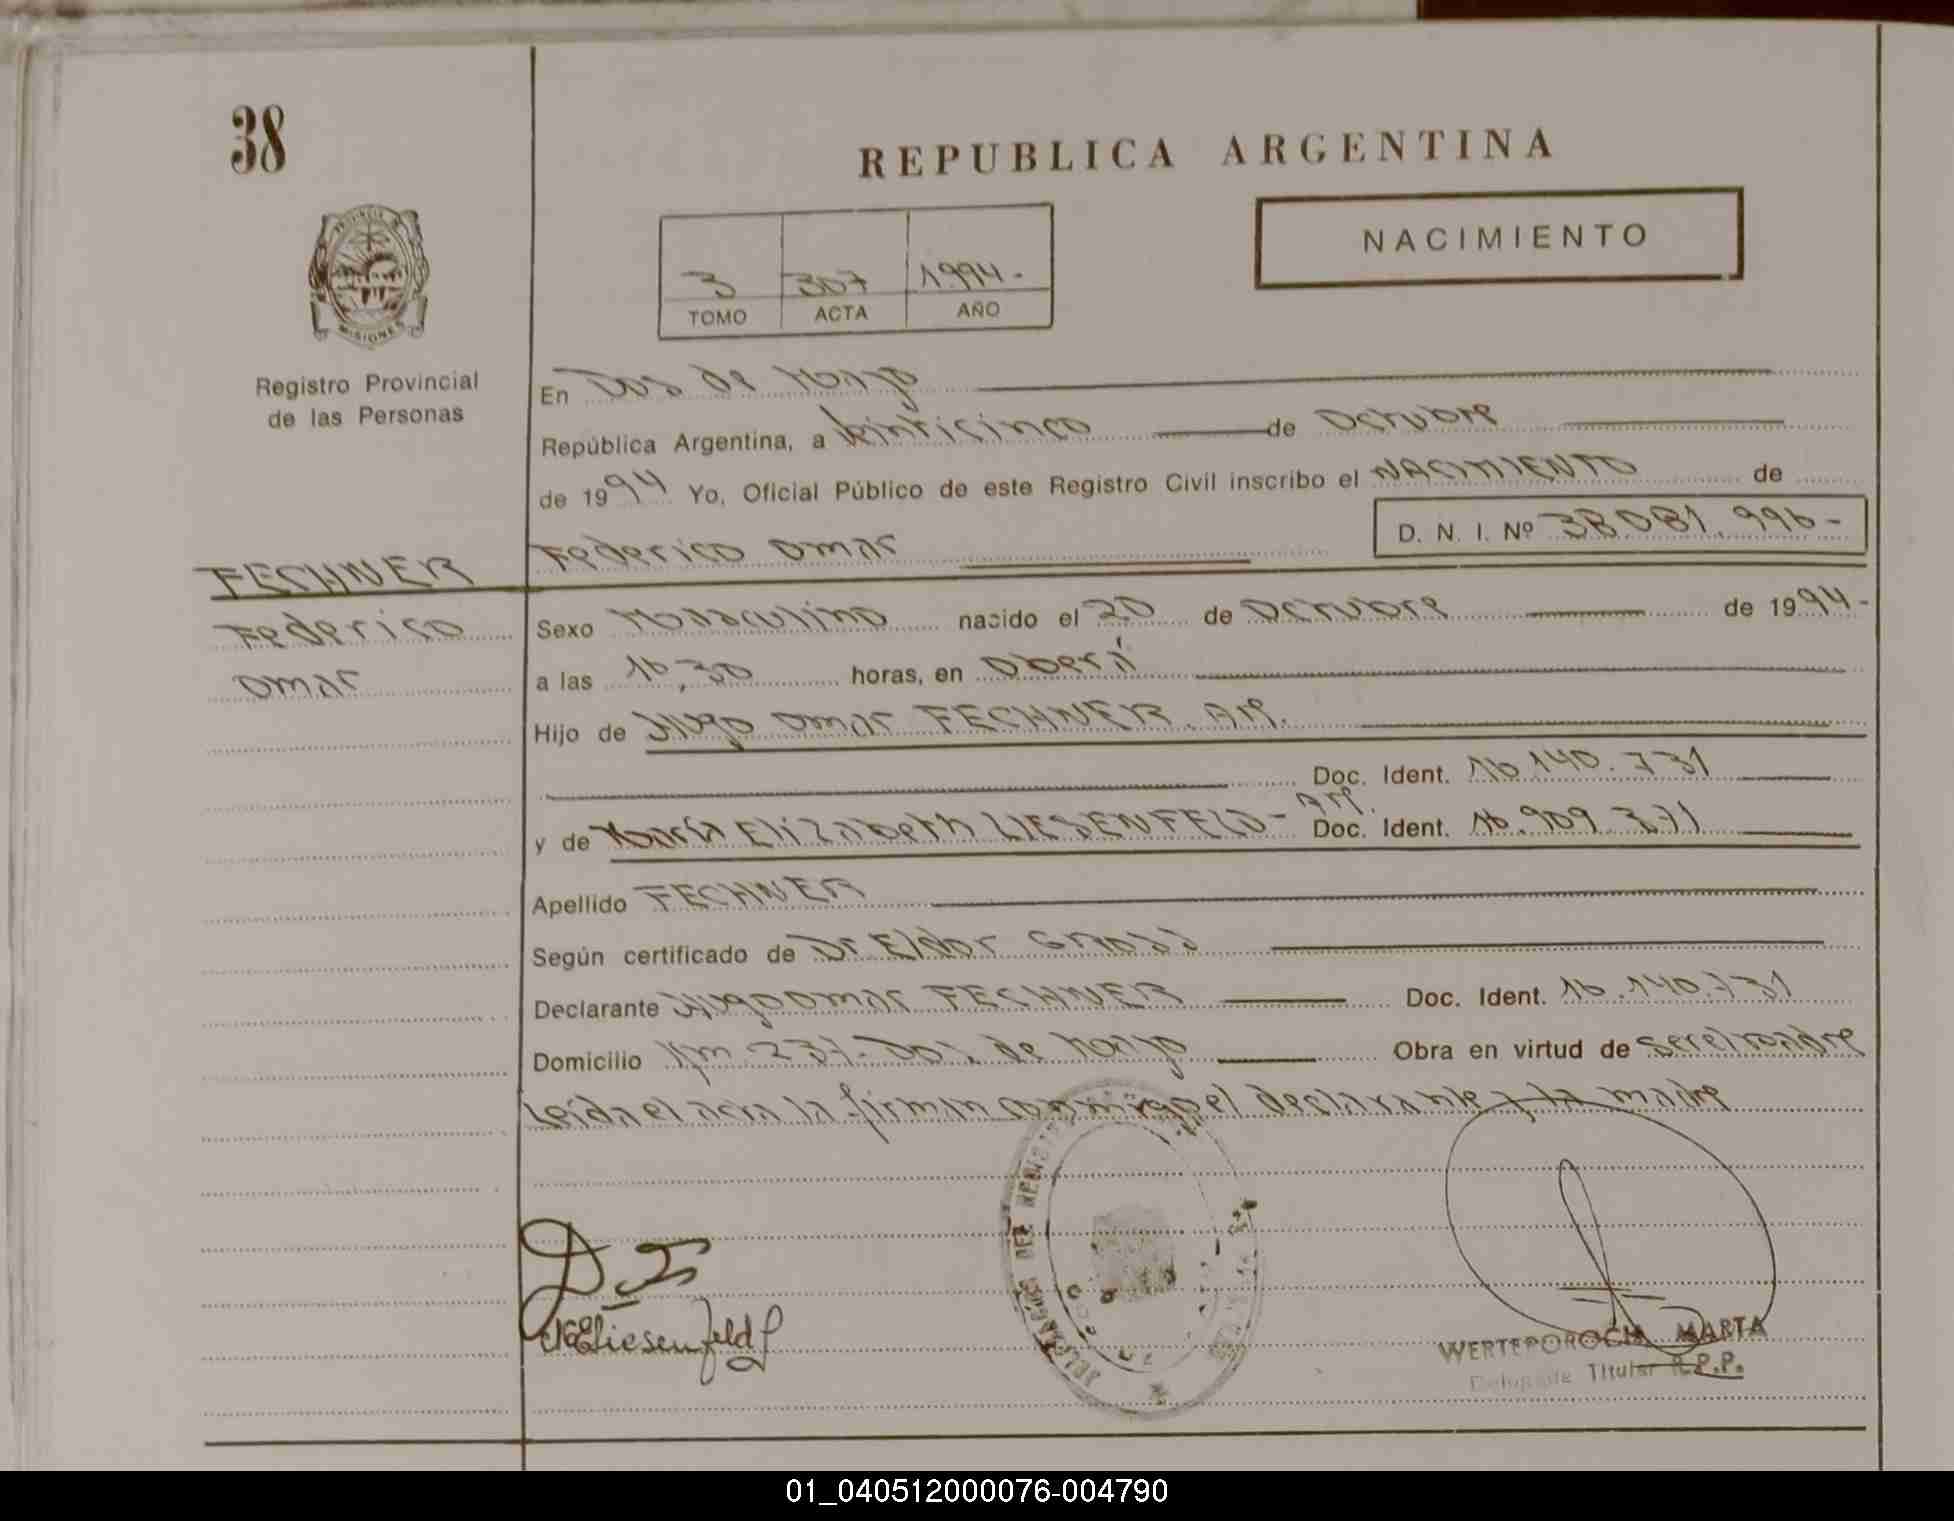 38
REPUBLICA ARGENTINA
NACIMIENTO
3 307 1.994.-
TOMO ACTA AÑO
PROVINCIA DE
MISIONES
Registro Provincial
de las Personas
En Dos de Mayo
República Argentina, a Veinticinco de Octubre
de 1994 Yo, Oficial Público de este Registro Civil inscribo el NACIMIENTO de
D. N. I. Nº 38.081.996-
FECHNER Federico Omar
Federico Sexo Masculino nacido el 20 de Octubre de 1994-
Omar a las 16,30 horas, en Oberá
Hijo de Hugo Omar FECHNER. Arg.
Doc. Ident. 16.140.731
y de María Elizabeth LIESENFELD- Arg. Doc. Ident. 16.909.371
Apellido FECHNER
Según certificado de Dr Eldor Gross
Declarante Hugo Omar FECHNER Doc. Ident. 16.140.731
Domicilio Km. 237. Dos de Mayo Obra en virtud de ser el padre
Leída el acta la firman conmigo el declarante y la madre
MELiesenfeld
WERTEPOROCH MARTA
Delegada Titular R.P.P.
01_040512000076-004790